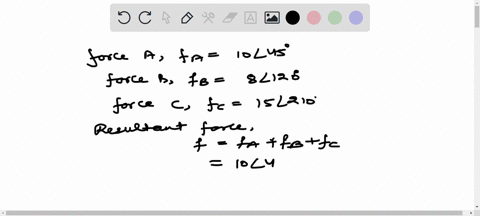 force A, fA = 10∠45°
force B, fB = 8∠120
force C, fC = 15∠210°
Resultant force,
f = fA + fB + fC
= 10∠4